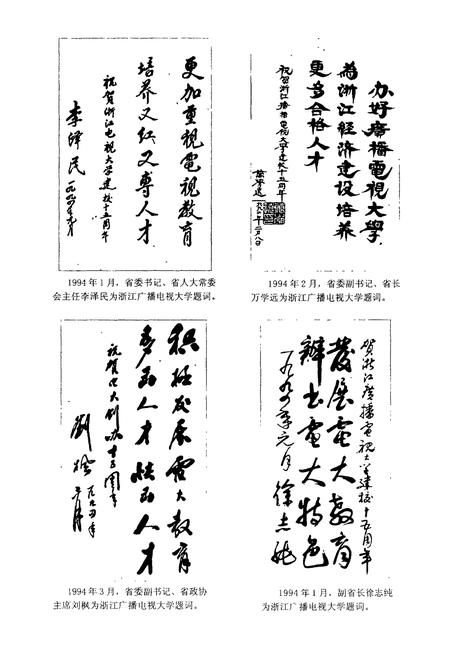 更加重視電視教育
培养又紅又專人才
祝賀浙江电視大学建校十五周年
李泽民 一九九四年元月
1994年1月，省委书记、省人大常委
会主任李泽民为浙江广播电视大学题词。
办好廣播電視大學
為浙江經济建設培养
更多合格人才
祝贺浙江广播电視大学建校十五周年
1994年2月，省委副书记、省长
万学远为浙江广播电视大学题词。
积极发展电大教育
多出人才 快出人才
祝賀电大创办十五周年
劉枫
一九九四年
1994年3月，省委副书记、省政协
主席刘枫为浙江广播电视大学题词。
賀浙江廣播電視大学建校十五周年
發展電大教育
辦出電大特色
一九九四年元月 徐志純
1994年1月，副省长徐志纯
为浙江广播电视大学题词。